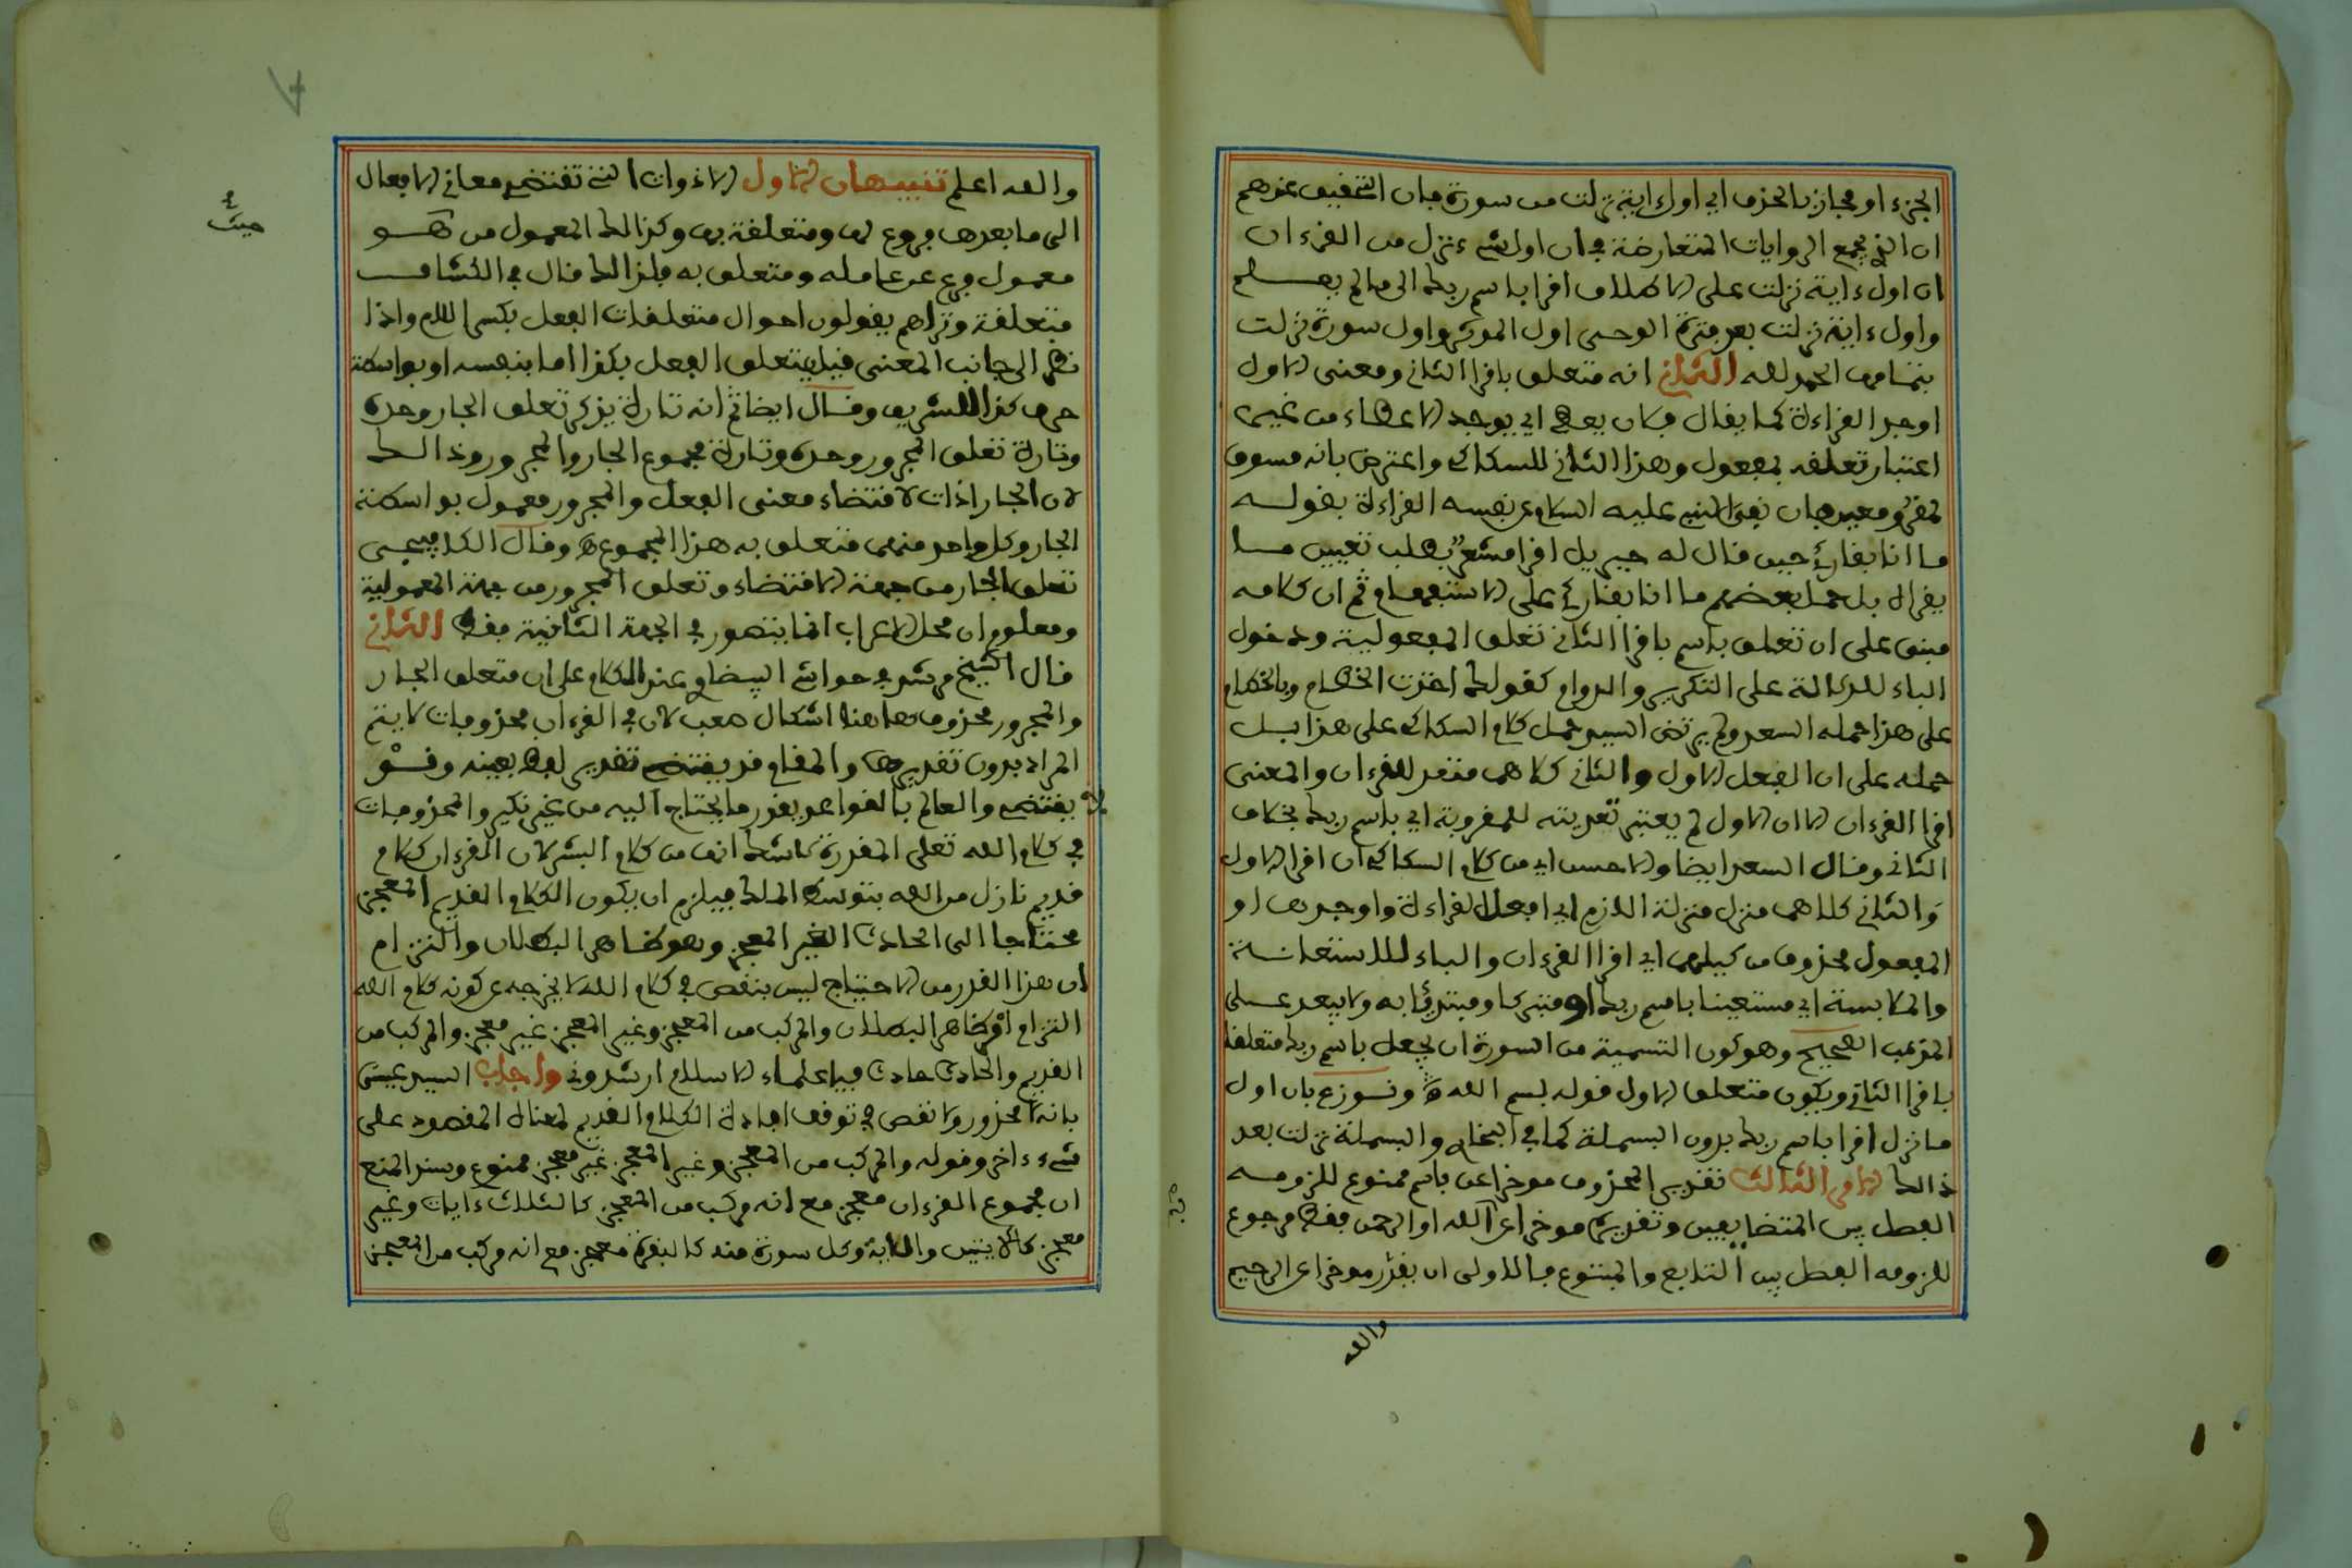 الجزء او مجاز بالحذف اي اول ءاية نزلت من سورة فان التحقيق عندهم
ان الذي يجمع الروايات المتعارضة في ان اول شيء نزل من القرءان
ان اول ءاية نزلت على الاطلاق اقرا باسم ربك الى ما لم يعلم
واول ءاية نزلت بعد فترة الوحي اول المدثر واول سورة نزلت
بتمامها الحمد لله الثاني انه متعلق باقرا الثاني ومعنى الاول
اوجد القراءة كما يقال فلان يعطي اي يوجد الاعطاء من غير
اعتبار تعلقه بمفعول وهذا الثاني للسكاكي واعترض بانه مسوق
نفى النبي عليه السلام عن نفسه القراءة بقوله
ما انا بقارئ حين قال له جبريل اقرا مشعر بطلب تعيين ما
يقرا لا بل حمل بعضهم ما انا بقارئ على الاستفهام ثم ان كلامه
مبنى على ان تعلق باسم باقرا الثاني تعلق المفعولية ودخول
الباء للدلالة على التكرير والدوام كقولك اخذت الخطام وبالخطام
على هذا حمله السعد ولم يرتض السيد حمل كلام السكاكي على هذا بل
حمله على ان الفعل الاول والثاني كلاهما متعد للقرءان والمعنى
اقرا القرءان الا ان الاول لم يعتبر تعديته للمقروء به اي باسم ربك بخلاف
الثاني وقال السعد ايضا والاحسن اي من كلام السكاكي ان اقرا الاول
والثاني كلاهما منزل منزلة اللازم اي افعل القراءة واوجدها او
المفعول محذوف من كليهما اي اقرا القرءان والباء للاستعانة
والملابسة اي مستعينا باسم ربك او متبركا ومبتدئا به ولا يبعد على
المذهب الصحيح وهو كون التسمية من السورة ان يجعل باسم ربك متعلقا
باقرا الثاني ويكون متعلق الاول قوله بسم الله ونوزع بان اول
ما نزل اقرا باسم ربك بدون البسملة كما في البخاري والبسملة نزلت بعد
ذالك الامر الثالث تقدير المحذوف موخرا عن باسم ممنوع للزومه
الفصل بين المتضايفين وتقديره موخرا عن الله او الرحمن فقط مرجوع
للزومه الفصل بين التابع والمتبوع فالاولى ان يقدر موخرا عن الرحيم
والله
والله اعلم تنبيهان الاول الاذوات التي تقتضي معاني الافعال
الى ما بعدها فروع لها ومتعلقة بها وكذالك المعمول من هو
معمول فرع عن عامله ومتعلق به فلذالك قال في الكشاف
متعلقة وتراهم يقولون احوال متعلقات الفعل بكسر اللام واذا
نظر الى جانب المعنى قيل يتعلق الفعل بكذا اما بنفسه او بواسطة
حرف كذا للشريف وقال ايضا ثم انه تارة يذكر تعلق الجار وحده
وتارة تعلق المجرور وحده وتارة مجموع الجار والمجرور وذالك
لان الجار اذات لاقتضاء معنى الفعل والمجرور معمول بواسطة
الجار وكل واحد منهما متعلق به هذا المجموع وقال الكافيجي
تعلق الجار من جهة الاقتضاء وتعلق المجرور من جهة المعمولية
ومعلوم ان محل الاعراب انما يتصور في الجهة الثانية فقط الثاني
قال الشيخ في حواشي البيضاوي عند الكلام على ان متعلق الجار
والمجرور محذوف هاهنا اشكال صعب لان في القرءان محذوفات لا يتم
المراد بدون تقديرها والمقام قد يقتضي تقدير لفظ بعينه وقد
لا يقتضي والعالم بالقواعد يقدر ما يحتاج اليه من غير نكير والمحذوفات
في كلام الله تعلى المقدرة لا شك انها من كلام البشر لان القرءان كلام
قديم نازل من الله بتوسط الملك فيلزم ان يكون الكلام القديم المعجز
محتاجا الى الحادث الغير المعجز وهو ظاهر البطلان والتزام
ان هذا القدر من الاحتياج ليس بنقص في كلام الله لا يخرجه عن كونه كلام الله
التزام امر ظاهر البطلان والمركب من المعجز وغير المعجز غير معجز والمركب من
القديم والحادث حادث فيا علماء الاسلام ارشدوني واجاب السيد عيسى
بانه لا محذور ولا نقص في توقف افادة الكلام القديم لمعناه المقصود على
شيء ءاخر وقوله والمركب من المعجز وغير المعجز غير معجز ممنوع وسند المنع
ان مجموع القرءان معجز مع انه مركب من المعجز كالثلاث ءايات وغير
معجز كالايتين والاية وكل سورة منه كالبقرة معجز مع انه مركب من المعجز